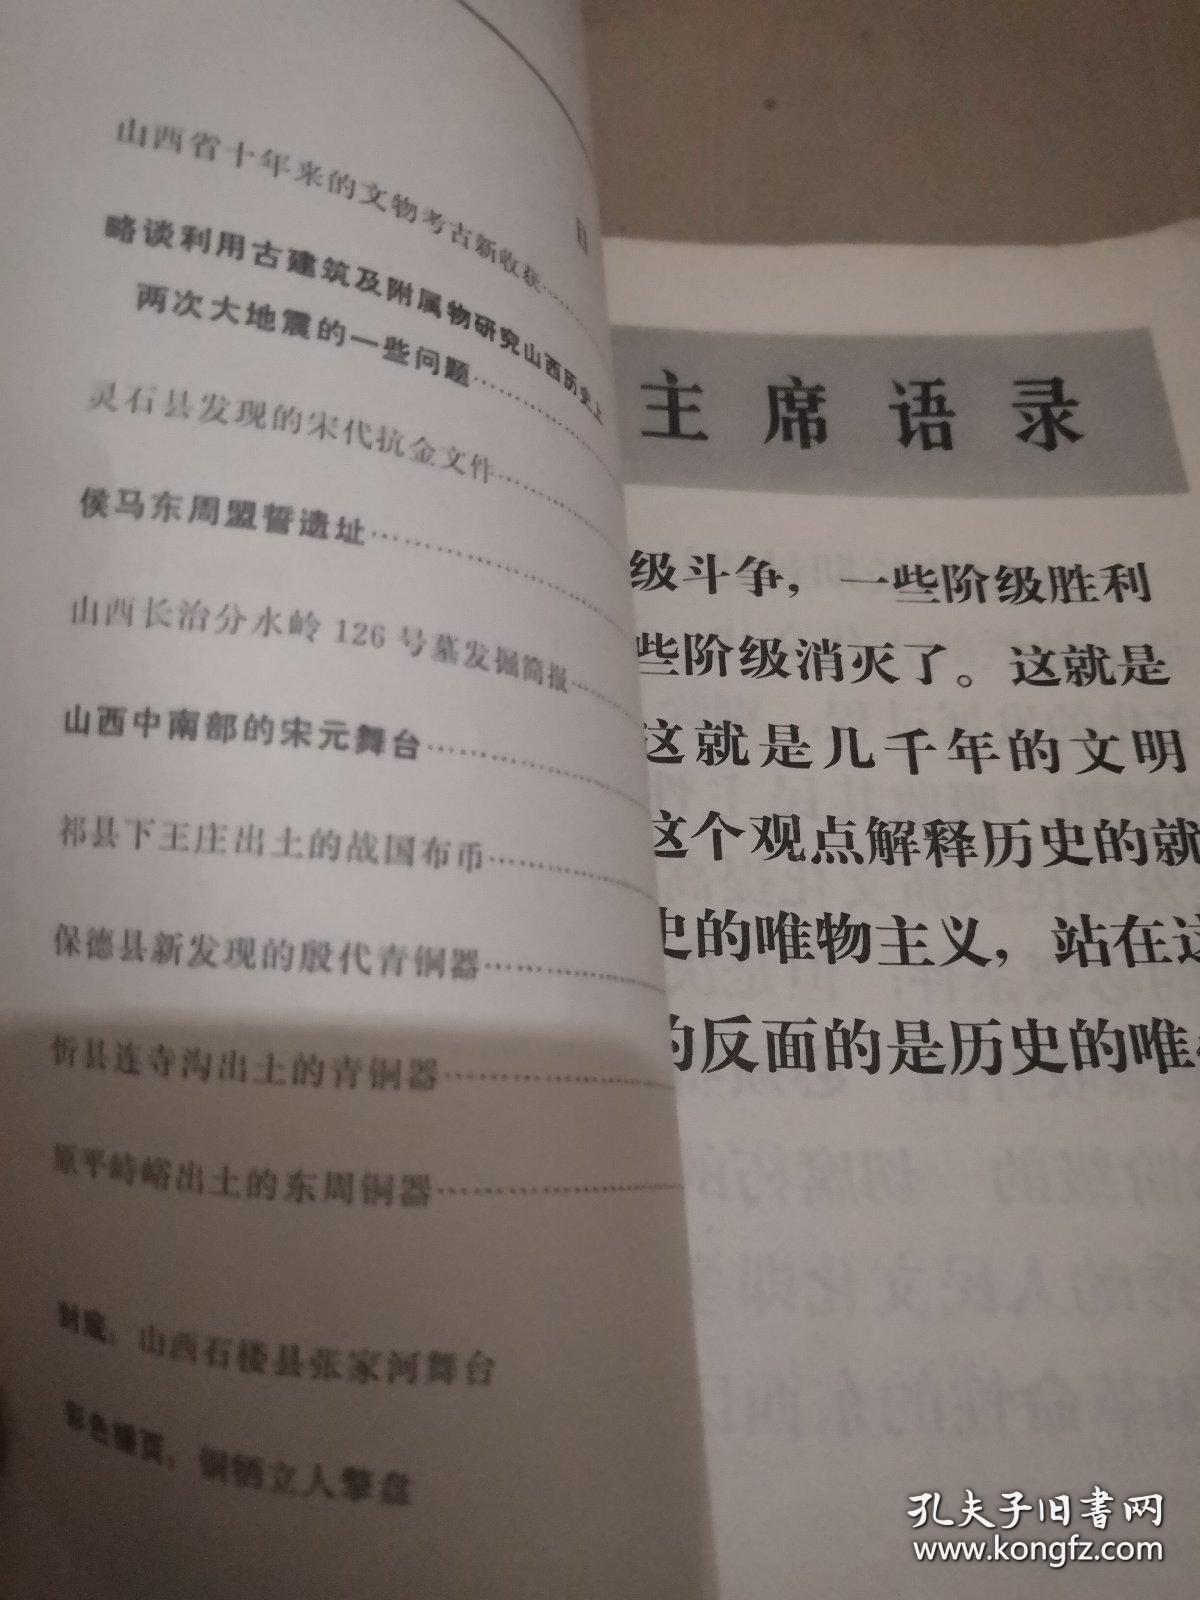 目
山西省十年来的文物考古新收获……
略谈利用古建筑及附属物研究山西历史上
两次大地震的一些问题……
灵石县发现的宋代抗金文件……
侯马东周盟誓遗址……
山西长治分水岭126号墓发掘简报……
山西中南部的宋元舞台……
祁县下王庄出土的战国布币……
保德县新发现的殷代青铜器……
忻县连寺沟出土的青铜器……
原平峙峪出土的东周铜器……
封底：山西石楼县张家河舞台
彩色插页：铜牺立人擎盘
主席语录
级斗争，一些阶级胜利
些阶级消灭了。这就是
这就是几千年的文明
这个观点解释历史的就
史的唯物主义，站在这
的反面的是历史的唯
孔夫子旧书网
www.kongfz.com